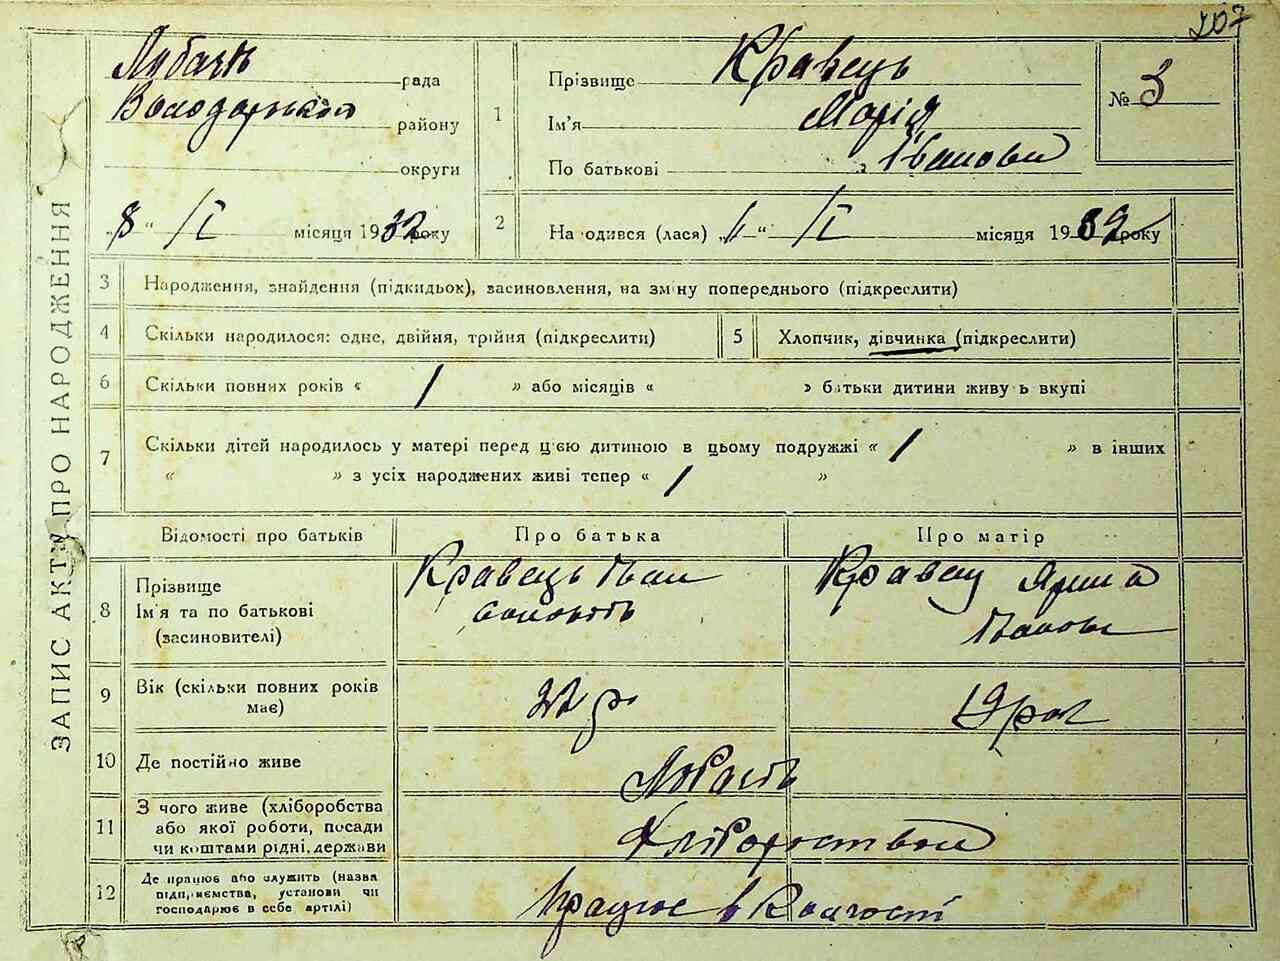 207
Любачь рада
Володарського району
округи
„8" /I місяця 1932 року
1 Прізвище Кравець
Ім'я Марія
По батькові Іванови
№ 3
2 На одився (лася) „1" /I місяця 1932 року
ЗАПИС АКТУ ПРО НАРОДЖЕННЯ
3 Народження, знайдення (підкидьок), засиновлення, на зміну попереднього (підкреслити)
4 Скільки народилося: одне, двійня, трійня (підкреслити)
5 Хлопчик, дівчинка (підкреслити)
6 Скільки повних років « 1 » або місяців « » батьки дитини живу ь вкупі
7 Скільки дітей народилось у матері перед цією дитиною в цьому подружжі « 1 » в інших
« » з усіх народжених живі тепер « 1 »
Відомості про батьків Про батька Про матір
8 Прізвище
Ім'я та по батькові
(засиновителі)
Кравець Іван
Кравец Ярина
Іванов
9 Вік (скільки повних років
має)
22 р
19 рок
10 Де постійно живе
11 З чого живе (хліборобства
або якої роботи, посади
чи коштами рідні, держави
Хліборобством
12 Де працює або служить (назва
підприємства, установи чи
господарює в себе артілі)
Працює в Колгоспі